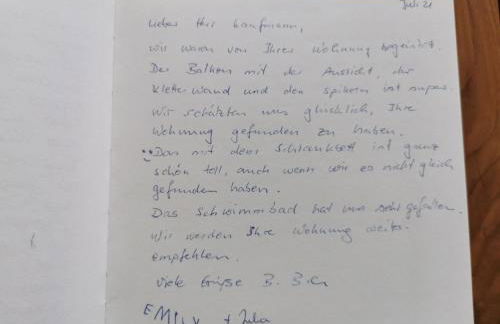 Juli 21
Lieber Herr Kaufmann,
wir waren von Ihrer Wohnung begeistert.
Der Balkon mit der Aussicht, der
Kletterwand und den Spielen ist super.
Wir schätzten uns glücklich, Ihre
Wohnung gefunden zu haben.
Das mit dem Schrankbett ist ganz
schön toll, auch wenn wir es nicht gleich
gefunden haben.
Das Schwimmbad hat uns sehr gefallen.
Wir werden Ihre Wohnung weiter-
empfehlen.
Viele Grüße B.
EMILY + Julia